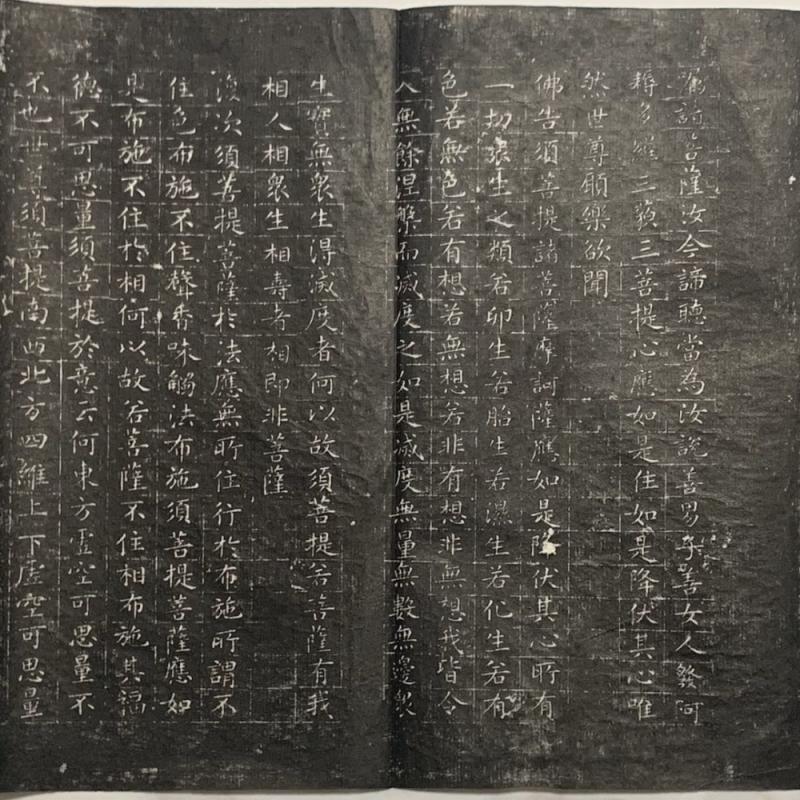 囑諸菩薩汝今諦聽當為汝說善男子善女人發阿
耨多羅三藐三菩提心應如是住如是降伏其心唯
然世尊願樂欲聞
佛告須菩提諸菩薩摩訶薩應如是降伏其心所有
一切眾生之類若卵生若胎生若濕生若化生若有
色若無色若有想若無想若非有想非無想我皆令
入無餘涅槃而滅度之如是滅度無量無數無邊眾
生實無眾生得滅度者何以故須菩提若菩薩有我
相人相眾生相壽者相即非菩薩
復次須菩提菩薩於法應無所住行於布施所謂不
住色布施不住聲香味觸法布施須菩提菩薩應如
是布施不住於相何以故若菩薩不住相布施其福
德不可思量須菩提於意云何東方虛空可思量不
不也世尊須菩提南西北方四維上下虛空可思量